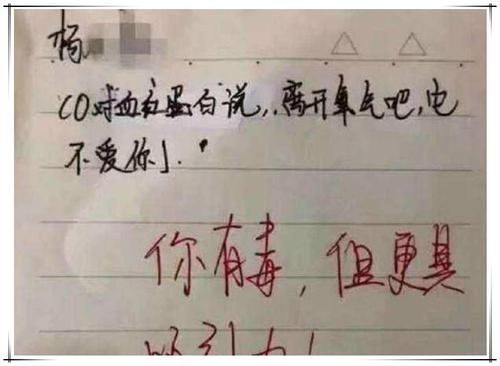 杨
CO对血红蛋白说,离开氧气吧,它
不爱你」.
你有毒,但更具
吸引力!